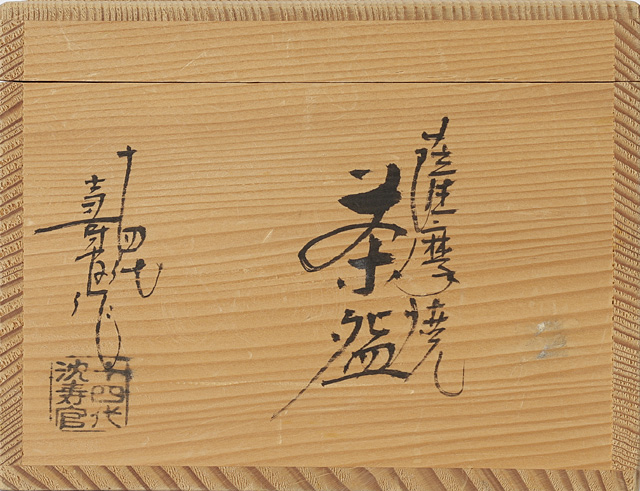 薩摩焼
茶盌
十四代
寿官
十四代
沈寿官